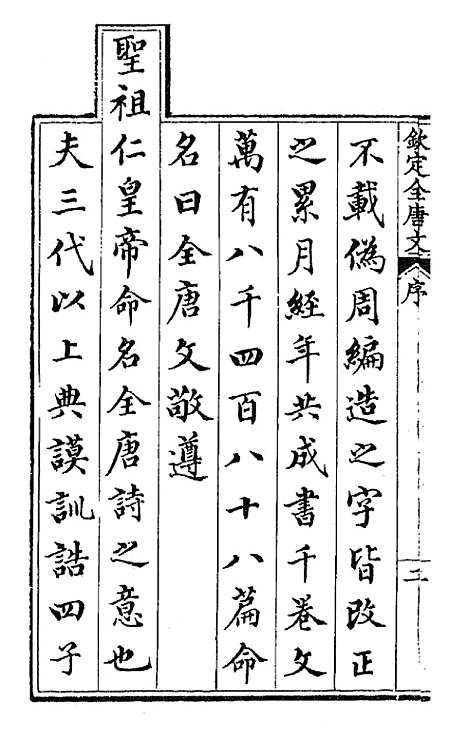 欽定全唐文 序 二
不載僞周編造之字皆改正
之累月經年共成書千卷文
萬有八千四百八十八篇命
名曰全唐文敬遵
聖祖仁皇帝命名全唐詩之意也
夫三代以上典謨訓誥四子